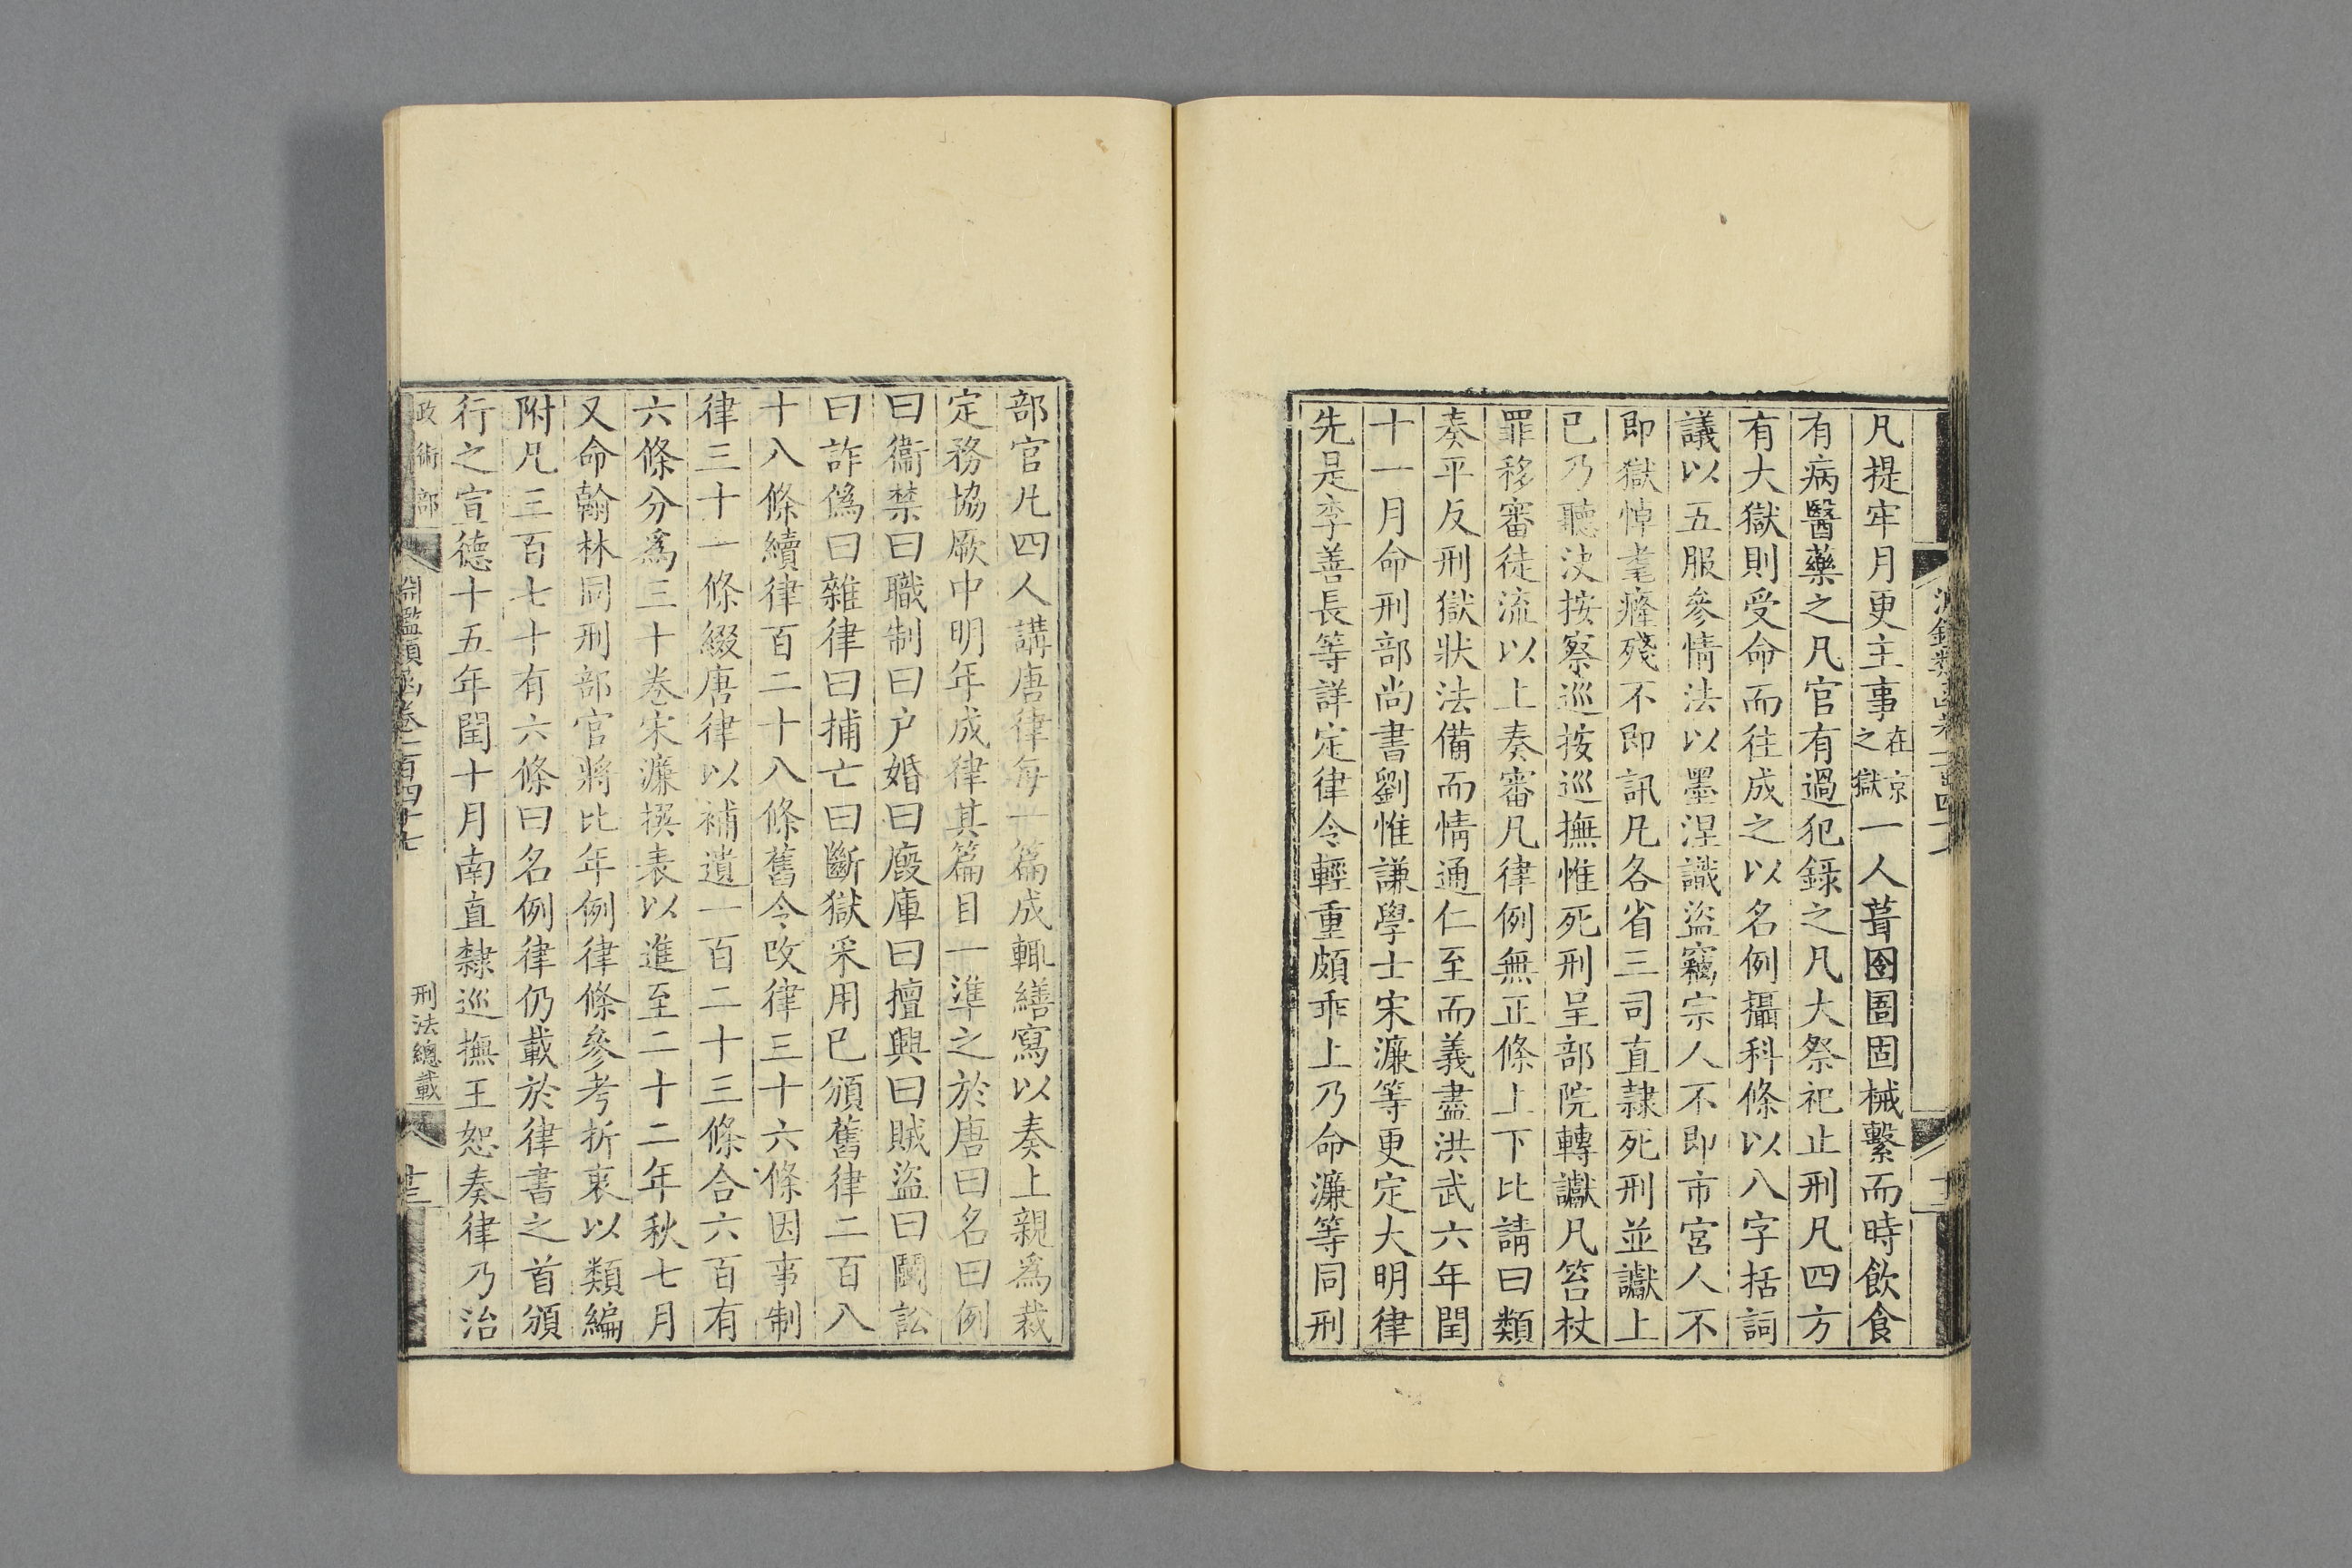 凡提牢月更主事在京之獄一人葺囹圄固械繫而時飲食
有病醫藥之凡官有過犯錄之凡大祭祀止刑凡四方
有大獄則受命而往成之以名例攝科條以八字括詞
議以五服參情法以墨涅識盜竊宗人不即市宮人不
即獄悼耄癃殘不即訊凡各省三司直隸死刑並讞上
已乃聽決按察巡按巡撫惟死刑呈部院轉讞凡笞杖
罪移審徒流以上奏審凡律例無正條上下比請曰類
奏平反刑獄狀法備而情通仁至而義盡洪武六年閏
十一月命刑部尚書劉惟謙學士宋濂等更定大明律
先是李善長等詳定律令輕重頗乖上乃命濂等同刑
部官凡四人講唐律每一篇成輒繕寫以奏上親為裁
定務協厥中明年成律其篇目一準之於唐曰名曰例
曰衞禁曰職制曰户婚曰廄庫曰擅興曰賊盜曰鬭訟
曰詐僞曰雜律曰捕亡曰斷獄采用已頒舊律二百八
十八條續律百二十八條舊令改律三十六條因事制
律三十一條綴唐律以補遺一百二十三條合六百有
六條分爲三十卷宋濂撰表以進至二十二年秋七月
又命翰林同刑部官將比年例律條參考折衷以類編
附凡三百七十有六條曰名例律仍載於律書之首頒
行之宣德十五年閏十月南直隸巡撫王恕奏律乃治
政術部 淵鑑類函卷一百四十七 刑法總載 十三